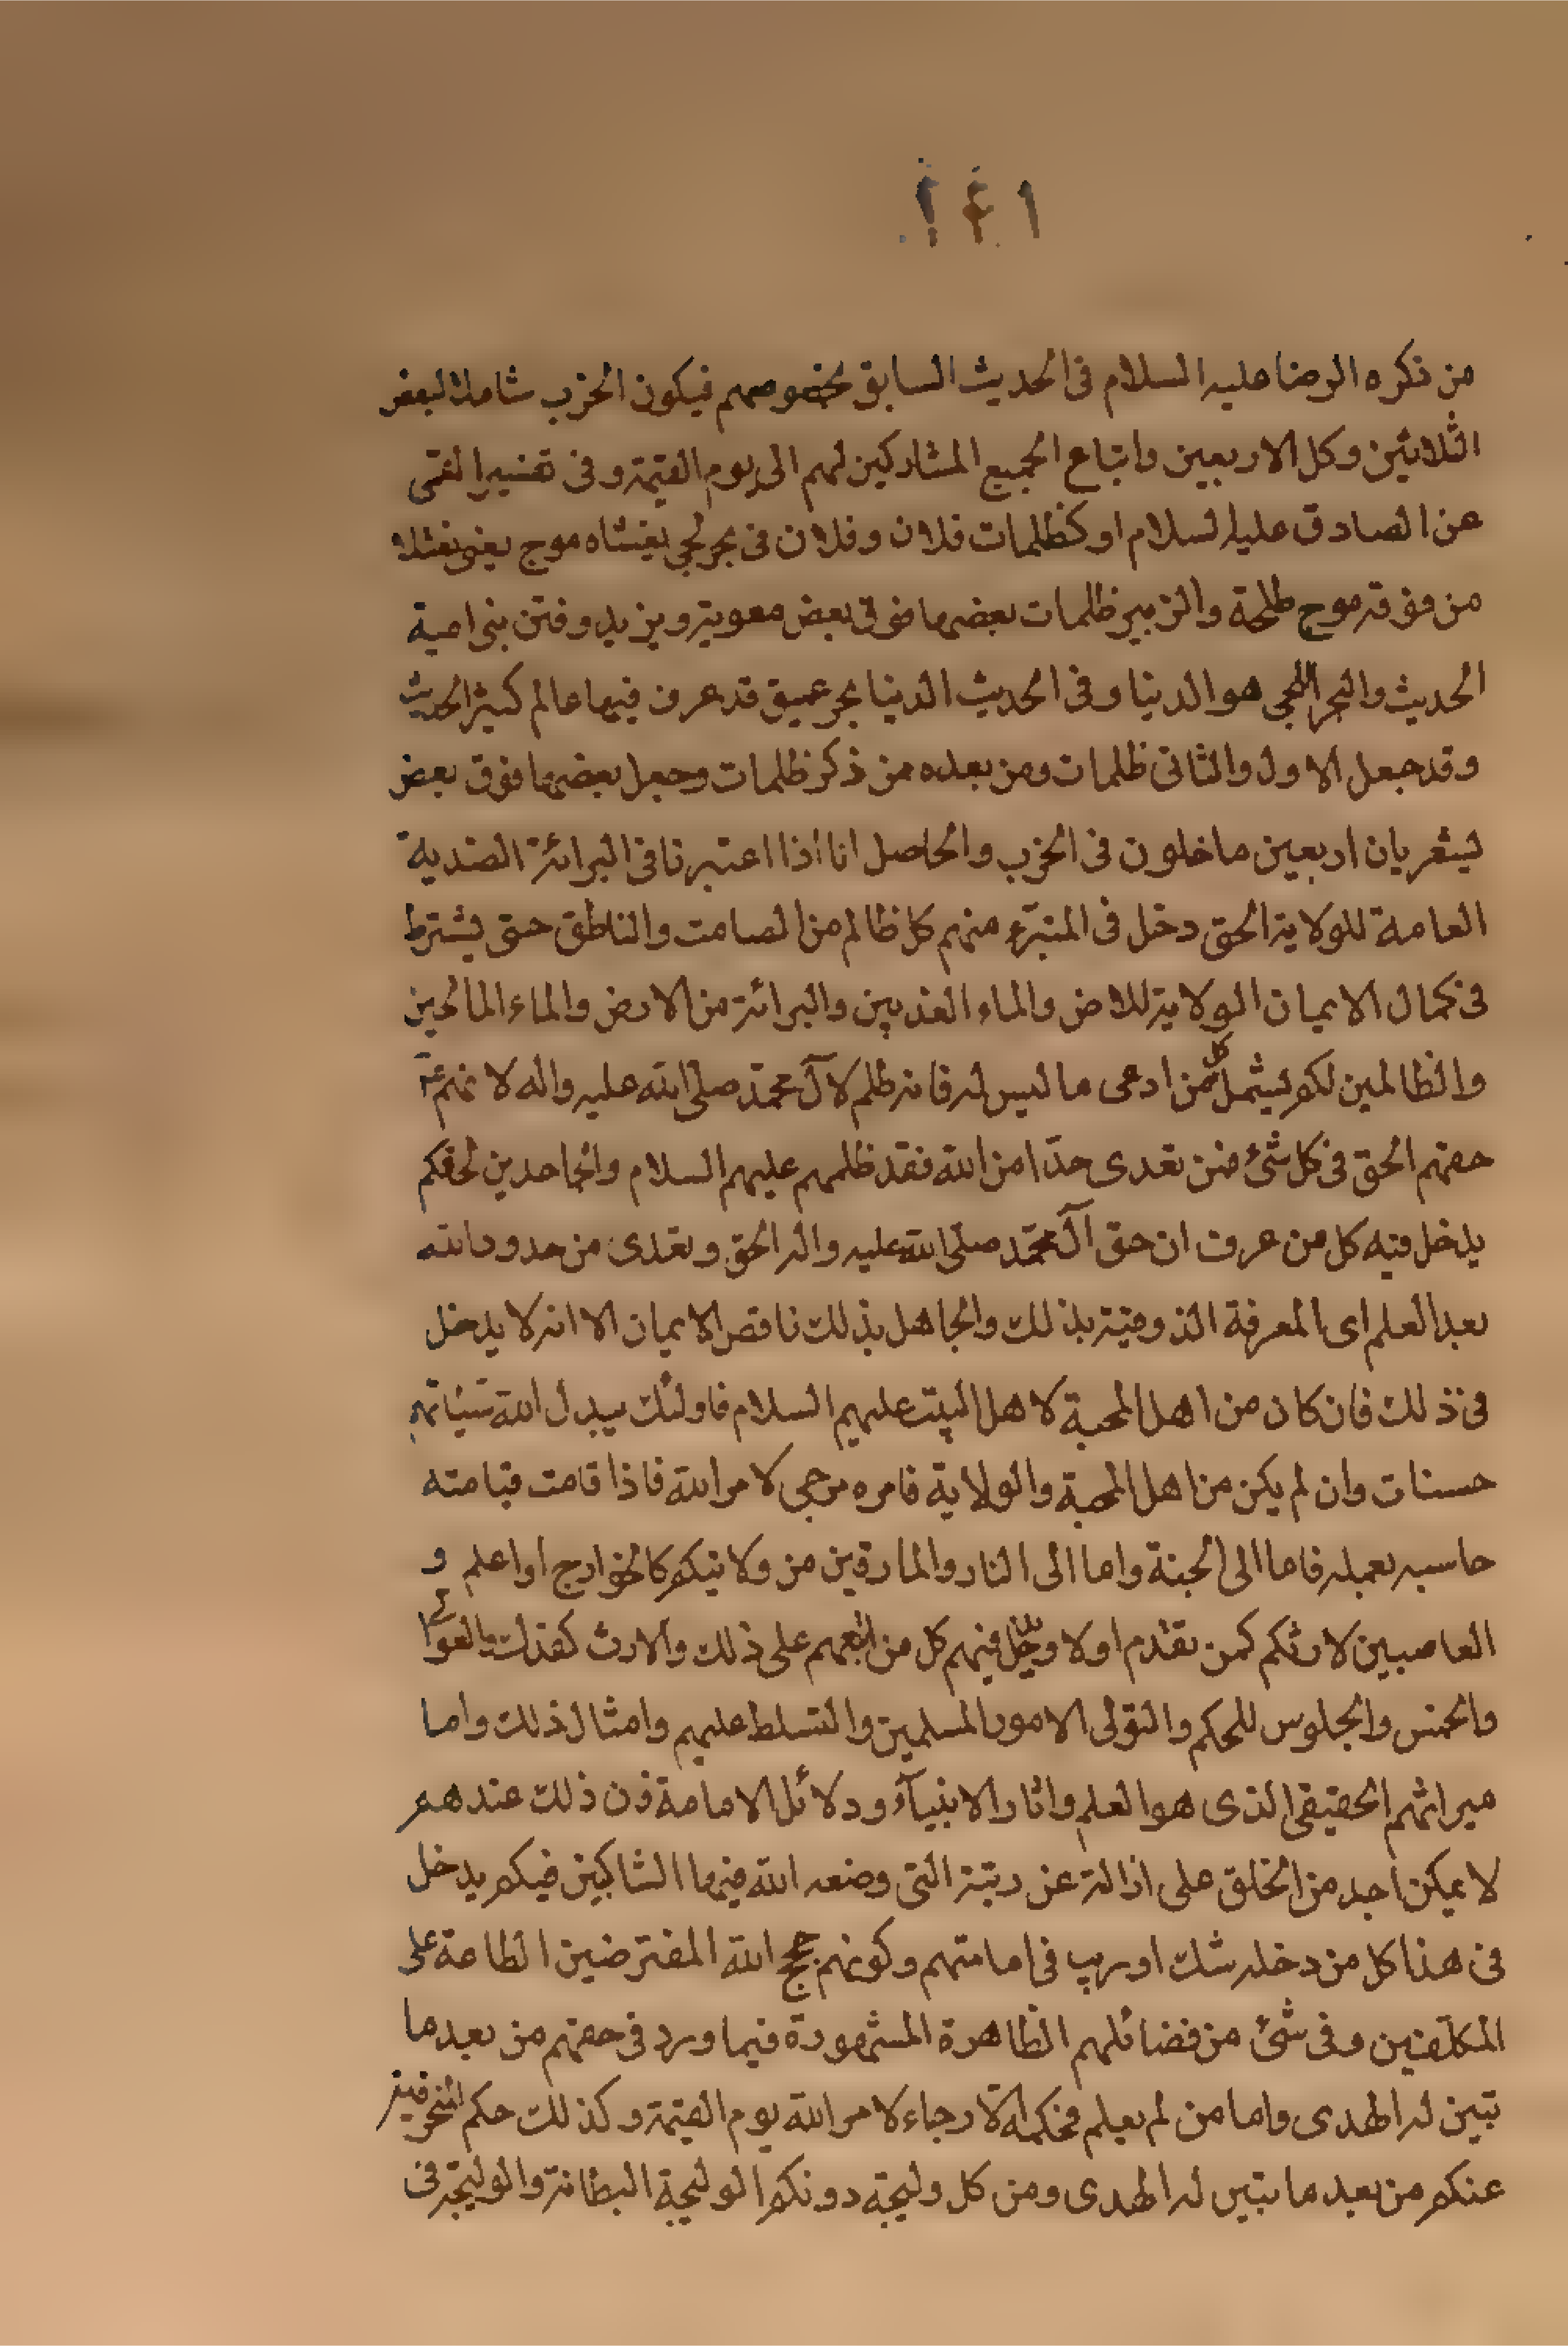 من ذكره الرضا عليه السلام فى الحديث السابق بخصوصهم فيكون الحزب شاملا لبعض
الثلاثين وكل الاربعين واتباع الجميع المشاركين لهم الى يوم القيمة وفى تفسير القمى
عن الصادق عليه السلام او كظلمات فلان وفلان فى بحر لجى يغشاه موج يعنى نعثلا
من فوقه موج طلحة والزبير ظلمات بعضها فوق بعض معوية ويزيد وفتن بنى امية
الحديث والبحر اللجى هو الدنيا وفى الحديث الدنيا بحر عميق قد غرق فيها عالم كثير الحديث
وقد جعل الاول والثانى ظلمات ومن بعده من ذكر ظلمات وجعل بعضها فوق بعض
ليشعر بان اربعين داخلون فى الحزب والحاصل انا اذا اعتبرنا فى البرائة الضدية
العامة للولاية الحق دخل فى المتبرء منهم كل ظالم من الصامت والناطق حتى يشترط
فى كمال الايمان الولاية للارض والماء العذبين والبرائة من الارض والماء المالحين
والظالمين لكم ليشمل كل من ادعى ما ليس له فانه ظلم لآل محمد صلى الله عليه واله لانهم
حقهم الحق فى كل شئ فمن تعدى حدّا من الله فقد ظلمهم عليهم السلام والجاحدين لحقكم
يدخل فيه كل من عرف ان حق آل محمد صلى الله عليه واله الحق وتعدى من حدود الله
بعد العلم اى المعرفة الذوقية بذلك والجاهل بذلك ناقص الايمان الا انه لا يدخل
فى ذلك فان كان من اهل المحبة لاهل البيت عليهم السلام فاولئك يبدل الله سيئاتهم
حسنات وان لم يكن من اهل المحبة والولاية فامره مرجى لامر الله فاذا قامت قيامته
حاسبه بعمله فاما الى الجنة واما الى النار والمارقين من ولايتكم كالخوارج او اعلم و
الغاصبين لارثكم كمن تقدم اولا ويدخل فيهم كل من اتبعهم على ذلك والارث كفدك والعوالى
والخمس والجلوس للحكم والتولى الامور المسلمين والتسلط عليهم وامثال ذلك واما
ميراثهم الحقيقى الذى هو العلم واثار الانبيآء ودلائل الامامة فان ذلك عندهم
لا يمكن احد من الخلق على ازالته عن رتبته التى وضعه الله فيها الشاكين فيكم يدخل
فى هذا كل من دخله شك او ريب فى امامتهم وكونهم حجج الله المفترضين الطاعة على
المكلفين وفى شئ من فضائلهم الظاهرة المشهورة فيما ورد فى حقهم من بعد ما
تبين له الهدى واما من لم يعلم فحكمه الارجاء لامر الله يوم القيمة وكذلك حكم المنحرفين
عنكم من بعد ما تبين له الهدى ومن كل وليجة دونكم الوليجة البطانة والوليجة فى